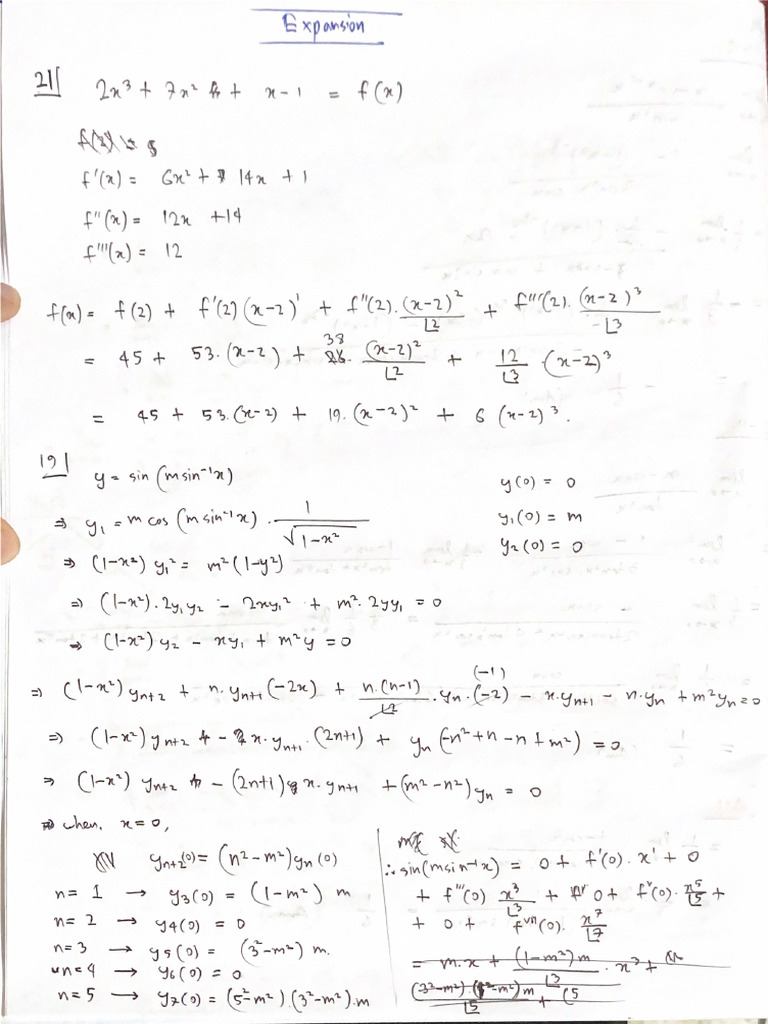 Expansion
21 2x³ + 7x² + x - 1 = f(x)
f'(x) = 6x² + 14x + 1
f''(x) = 12x + 14
f'''(x) = 12
f(x) = f(2) + f'(2)(x-2)' + f''(2).(x-2)²/⌊2 + f'''(2).(x-2)³/⌊3
= 45 + 53.(x-2) + 38 (x-2)²/⌊2 + 12/⌊3 .(x-2)³
= 45 + 53.(x-2) + 19.(x-2)² + 6 (x-2)³.
19 y = sin(m sin⁻¹x)
y(0) = 0
⇒ y₁ = m cos(m sin⁻¹x) . 1/√(1-x²)
y₁(0) = m
y₂(0) = 0
⇒ (1-x²) y₁² = m²(1-y²)
⇒ (1-x²).2y₁y₂ - 2xy₁² + m².2yy₁ = 0
⇒ (1-x²) y₂ - xy₁ + m²y = 0
⇒ (1-x²) yₙ₊₂ + n.yₙ₊₁(-2x) + n.(n-1)/⌊2 .yₙ.(-2) (-1) - x.yₙ₊₁ - n.yₙ + m²yₙ=0
⇒ (1-x²) yₙ₊₂ - x.yₙ₊₁.(2n+1) + yₙ(-n²+n-n+m²) = 0
⇒ (1-x²) yₙ₊₂ - (2n+1) x.yₙ₊₁ + (m²-n²)yₙ = 0
⇒ when, x=0,
yₙ₊₂(0) = (n²-m²)yₙ(0)
n= 1 → y₃(0) = (1-m²) m
n= 2 → y₄(0) = 0
n=3 → y₅(0) = (3²-m²) m.
n=4 → y₆(0) = 0
n=5 → y₇(0) = (5²-m²).(3²-m²).m
∴ sin(m sin⁻¹x) = 0 + f'(0).x' + 0
+ f'''(0) x³/⌊3 + 0 + fᵛ(0).x⁵/⌊5 +
+ 0 + fᵛᴵᴵ(0). x⁷/⌊7
= m.x + (1-m²)m/⌊3 . x³ +